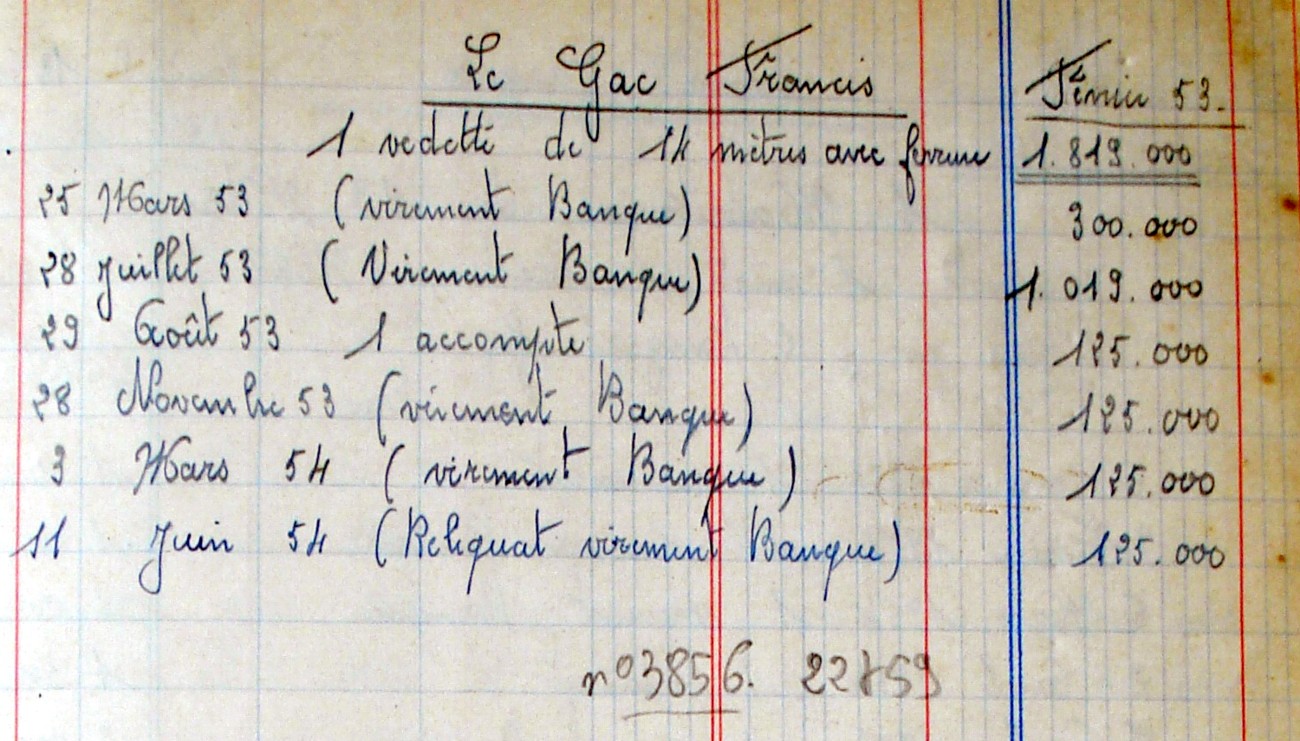 Le Gac Francis Février 53.
1 vedette de 14 mètres avec ferrure 1.819.000
25 Mars 53 (virement Banque) 300.000
28 Juillet 53 (Virement Banque) 1.019.000
29 Août 53 1 accompte 125.000
28 Novembre 53 (virement Banque) 125.000
3 Mars 54 (virement Banque) 125.000
11 Juin 54 (Reliquat virement Banque) 125.000
n° 3856.